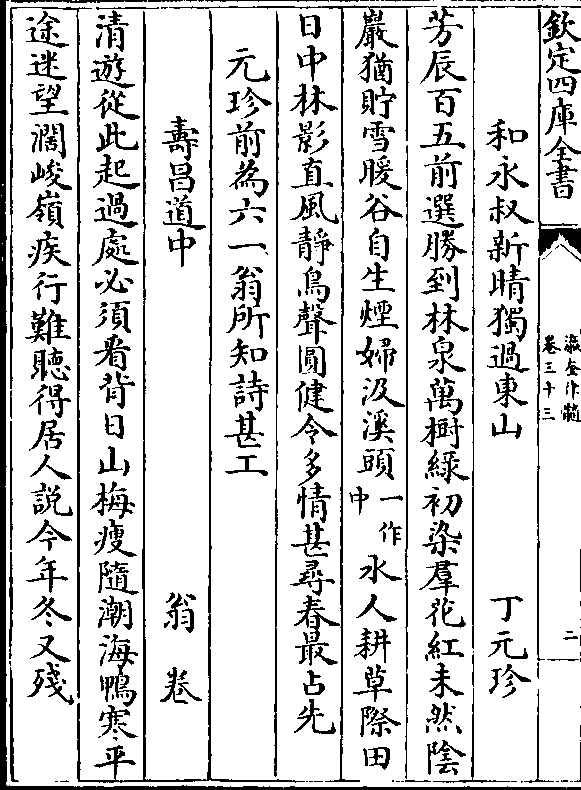 欽定四庫全書
瀛奎律髓
卷三十三
二
和永叔新晴獨過東山　丁元珍
芳辰百五前選勝到林泉萬樹綠初染羣花紅未然陰
巖猶貯雪暖谷自生煙婦汲溪頭一作中水人耕草際田
日中林影直風靜鳥聲圓健令多情甚尋春最占先
元珍前為六一翁所知詩甚工
壽昌道中　翁卷
清遊從此起過處必須看背日山梅瘦隨潮海鴨寒平
途迷望濶峻嶺疾行難聽得居人說今年冬又殘